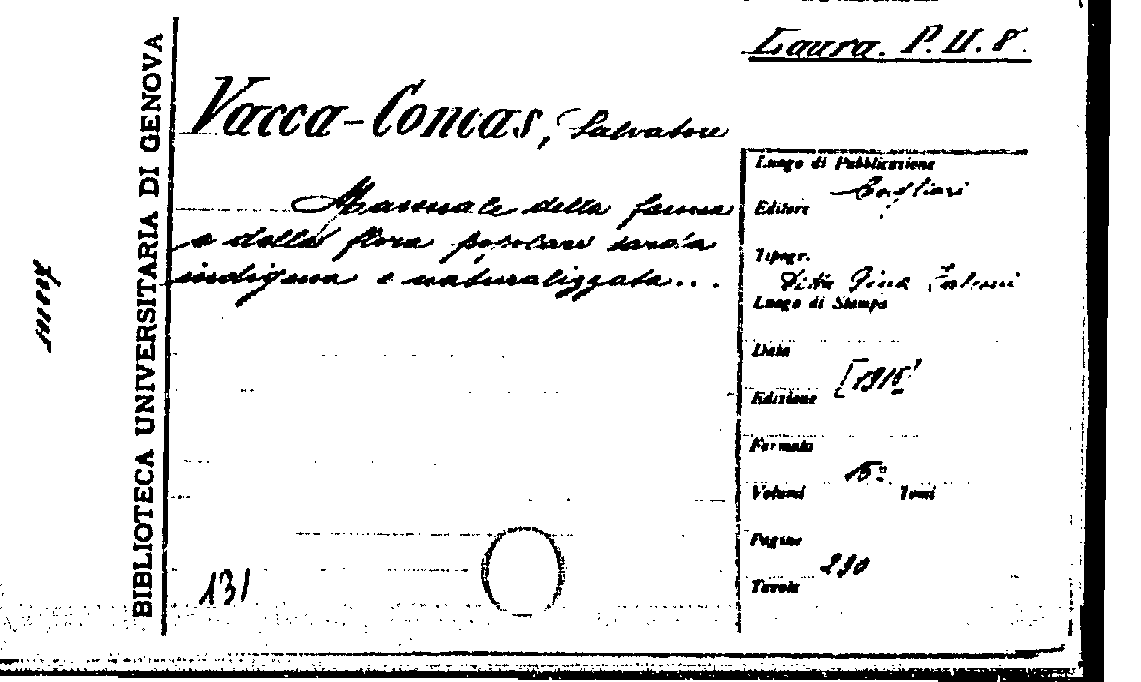 Laura. P. II. 8.
BIBLIOTECA UNIVERSITARIA DI GENOVA
Vacca-Comas, Salvatore
Manuale della fauna
e della flora popolare sarda
indigena e naturalizzata...
Luogo di Pubblicazione
Cagliari
Editore
Tipogr.
Ditta Gius.
Luogo di Stampa
Data
[191
Edizione
Formato
Volumi
Tomi
Pagine
290
Tavole
131